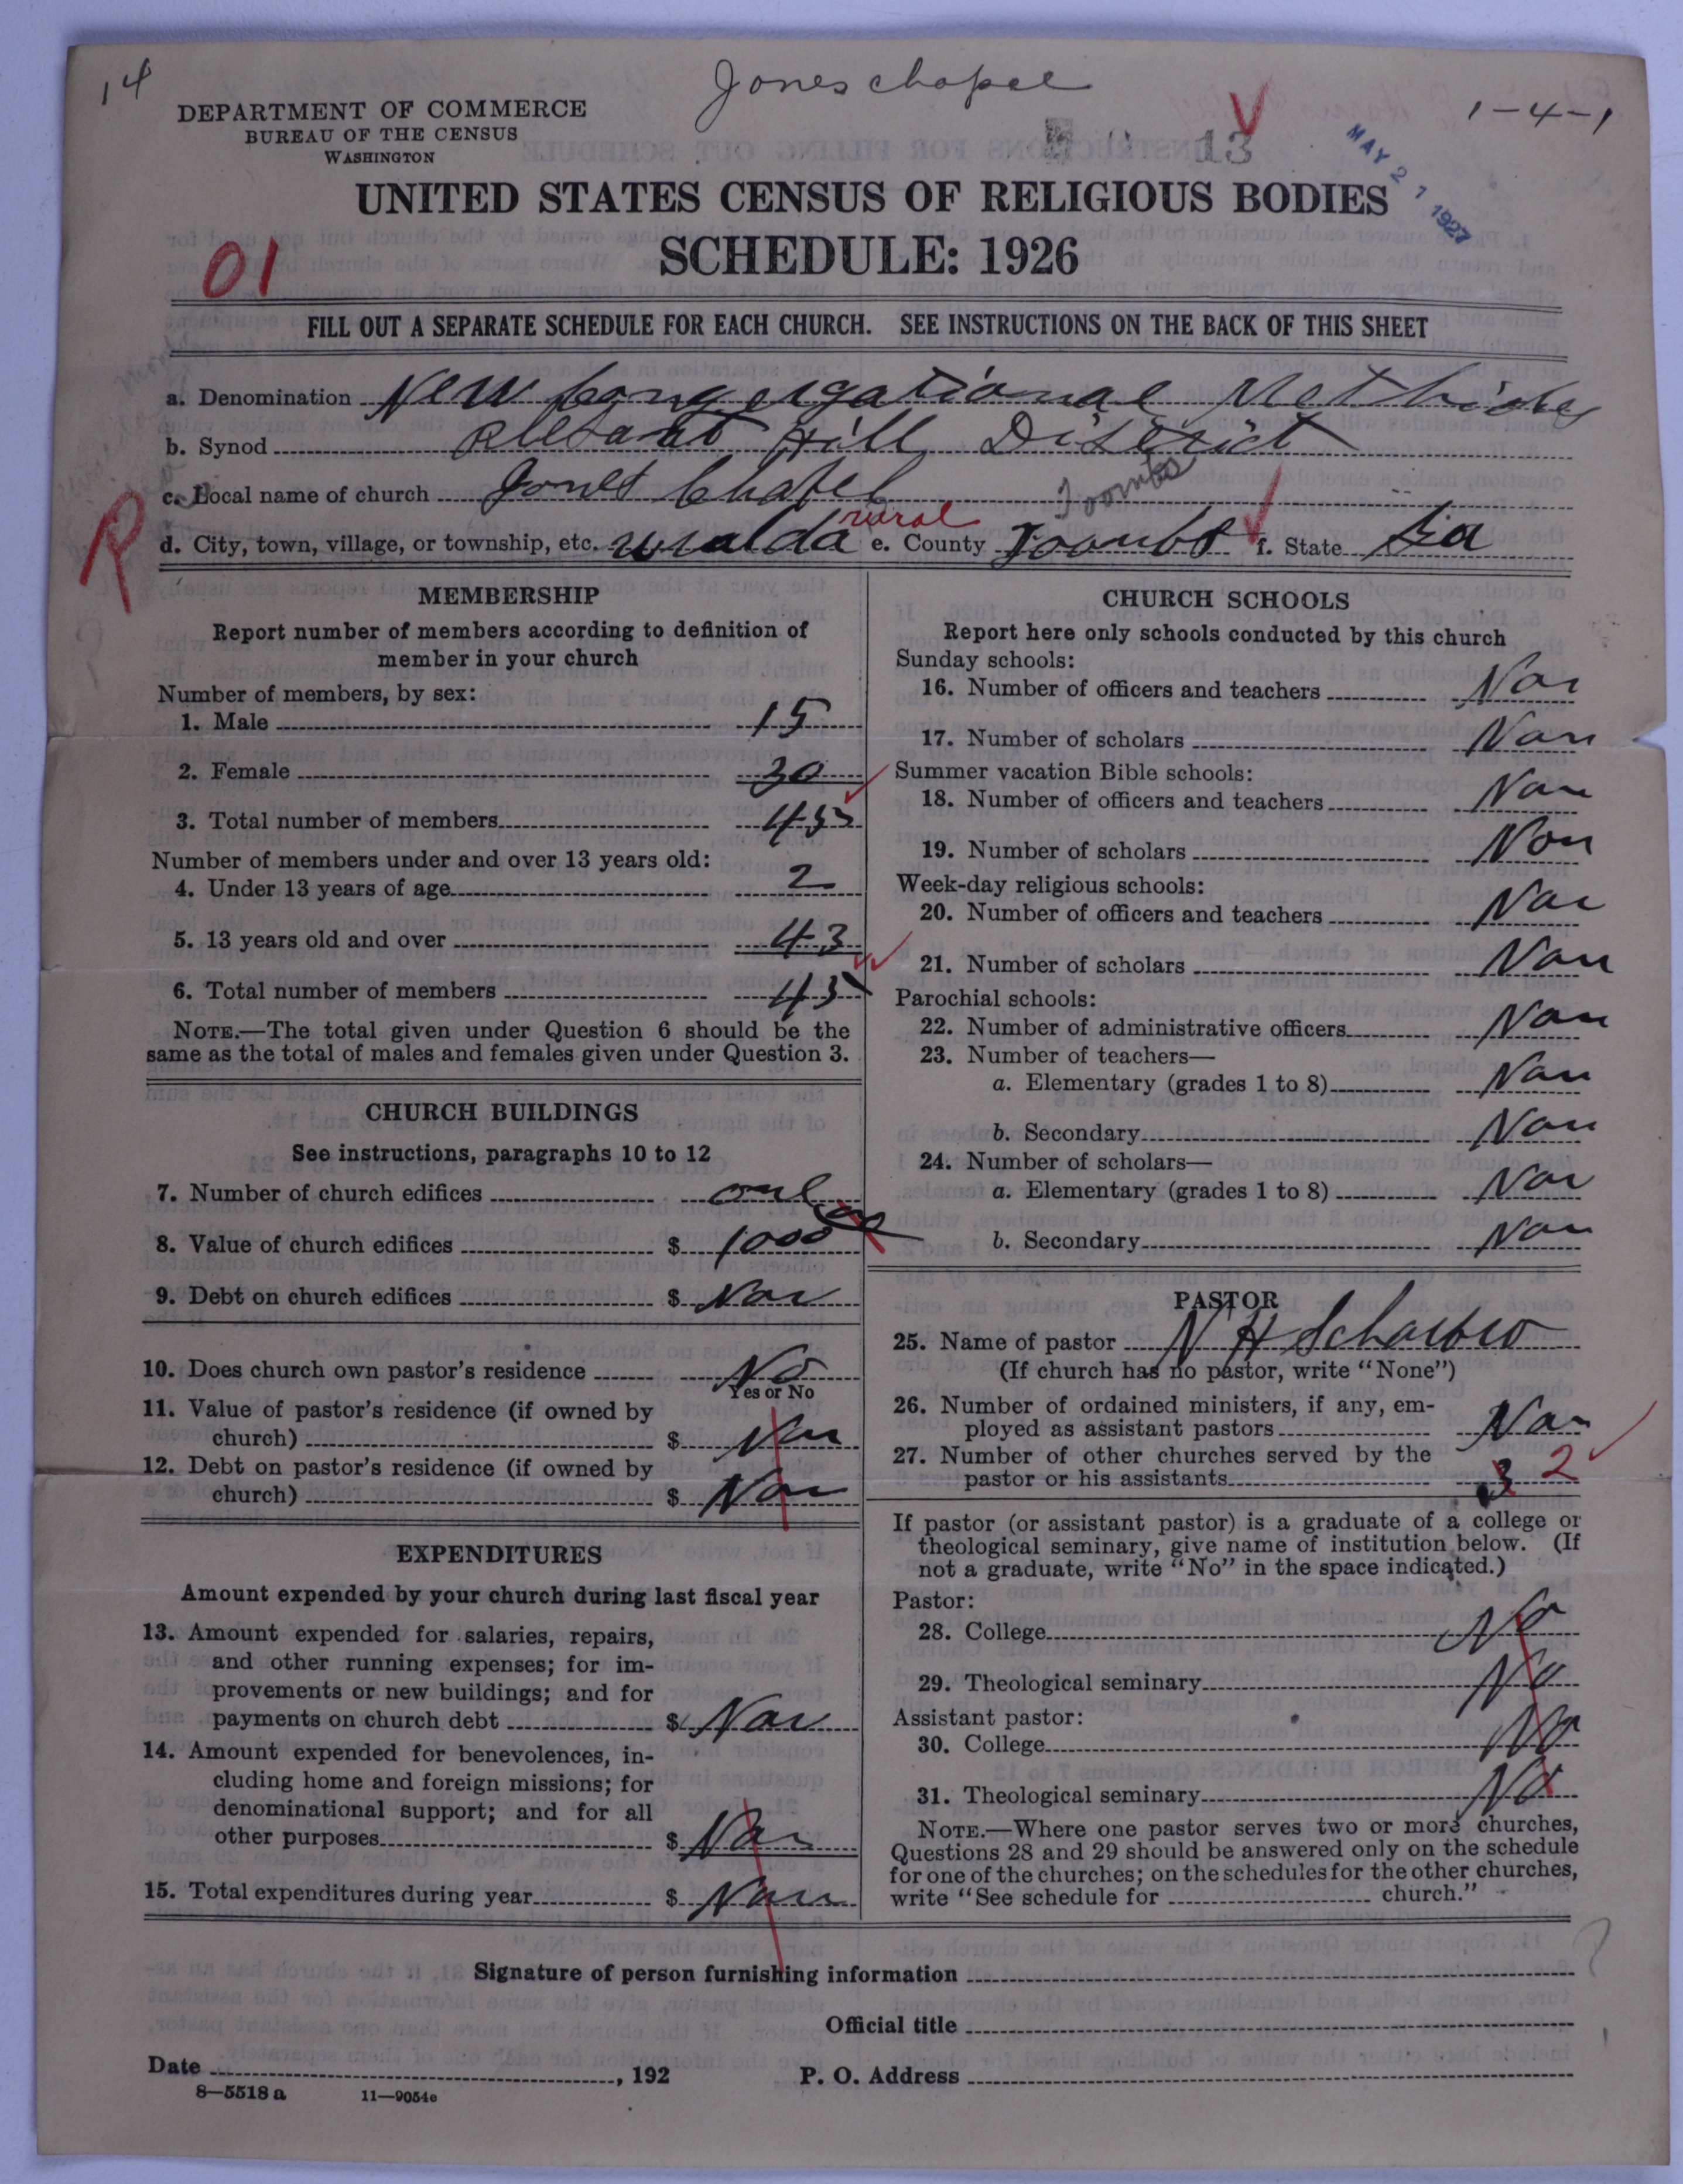 14
Jones chapel
1-4-1
DEPARTMENT OF COMMERCE
BUREAU OF THE CENSUS
WASHINGTON
13
MAY 21 1927
UNITED STATES CENSUS OF RELIGIOUS BODIES
SCHEDULE: 1926
01
FILL OUT A SEPARATE SCHEDULE FOR EACH CHURCH. SEE INSTRUCTIONS ON THE BACK OF THIS SHEET
a. Denomination New
b. Synod Hill District
c. Local name of church Jones Chapel
Toombs
R
rural
d. City, town, village, or township, etc. uvalda e. County Toombs f. State Ga
MEMBERSHIP
Report number of members according to definition of
member in your church
Number of members, by sex:
1. Male 15
2. Female 30
3. Total number of members 45
Number of members under and over 13 years old:
4. Under 13 years of age 2
5. 13 years old and over 43
6. Total number of members 45
NOTE.—The total given under Question 6 should be the
same as the total of males and females given under Question 3.
CHURCH BUILDINGS
See instructions, paragraphs 10 to 12
7. Number of church edifices one
8. Value of church edifices $ 1000
9. Debt on church edifices $ Non
10. Does church own pastor's residence No
Yes or No
11. Value of pastor's residence (if owned by
church) $ Non
12. Debt on pastor's residence (if owned by
church) $ Non
EXPENDITURES
Amount expended by your church during last fiscal year
13. Amount expended for salaries, repairs,
and other running expenses; for im-
provements or new buildings; and for
payments on church debt $ Non
14. Amount expended for benevolences, in-
cluding home and foreign missions; for
denominational support; and for all
other purposes $ Non
15. Total expenditures during year $ Non
CHURCH SCHOOLS
Report here only schools conducted by this church
Sunday schools:
16. Number of officers and teachers Non
17. Number of scholars Non
Summer vacation Bible schools:
18. Number of officers and teachers Non
19. Number of scholars Non
Week-day religious schools:
20. Number of officers and teachers Non
21. Number of scholars Non
Parochial schools:
22. Number of administrative officers Non
23. Number of teachers—
a. Elementary (grades 1 to 8) Non
b. Secondary Non
24. Number of scholars—
a. Elementary (grades 1 to 8) Non
b. Secondary Non
PASTOR
25. Name of pastor N H
(If church has no pastor, write "None")
26. Number of ordained ministers, if any, em-
ployed as assistant pastors Non
27. Number of other churches served by the
pastor or his assistants 3 2
If pastor (or assistant pastor) is a graduate of a college or
theological seminary, give name of institution below. (If
not a graduate, write "No" in the space indicated.)
Pastor:
28. College No
29. Theological seminary No
Assistant pastor:
30. College No
31. Theological seminary No
NOTE.—Where one pastor serves two or more churches,
Questions 28 and 29 should be answered only on the schedule
for one of the churches; on the schedules for the other churches,
write "See schedule for church."
Signature of person furnishing information
Official title
Date , 192 P. O. Address
8—5518 a 11—9054e